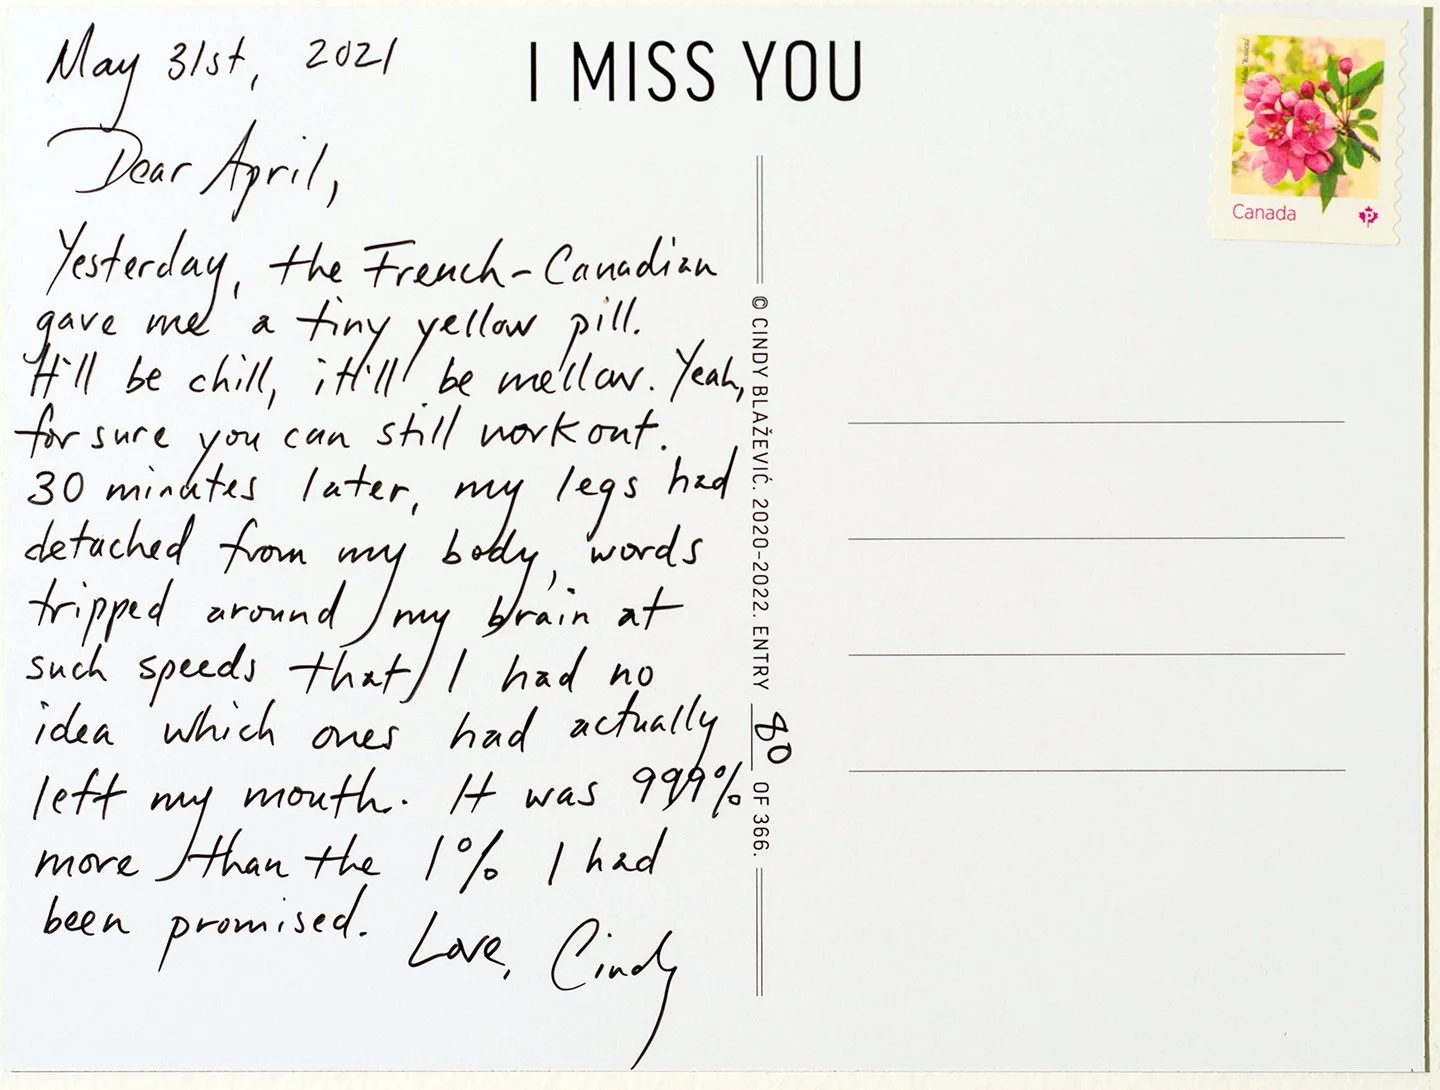 May 31st, 2021
I MISS YOU
Dear April,
Yesterday, the French-Canadian
gave me a tiny yellow pill.
It'll be chill, it'll be mellow. Yeah,
for sure you can still workout.
30 minutes later, my legs had
detached from my body, words
tripped around my brain at
such speeds that I had no
idea which ones had actually
left my mouth. It was 999%
more than the 1% I had
been promised.
Love, Cindy
© CINDY BLAŽEVIĆ. 2020-2022. ENTRY 80 OF 366.
Canada
P